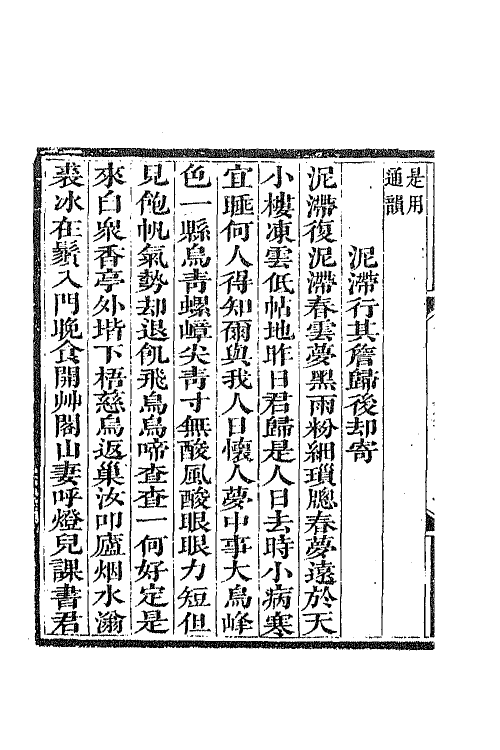 是用
通韻
泥滯行其詹歸後却寄
泥滯復泥滯春雲夢黑雨粉細瑣牕春夢遠於天
小樓凍雲低帖地昨日君歸是人日去時小病寒
宜睡何人得知爾與我人日懷人夢中事大烏峰
色一縣烏靑螺嶂尖靑寸無酸風酸眼眼力短但
見飽帆氣勢却退飢飛烏烏啼查查一何好定是
來白泉香亭外堦下梧慈烏返巢汝叩廬烟水滃
裘冰在鬚入門晚食開艸閣山妻呼燈兒課書君